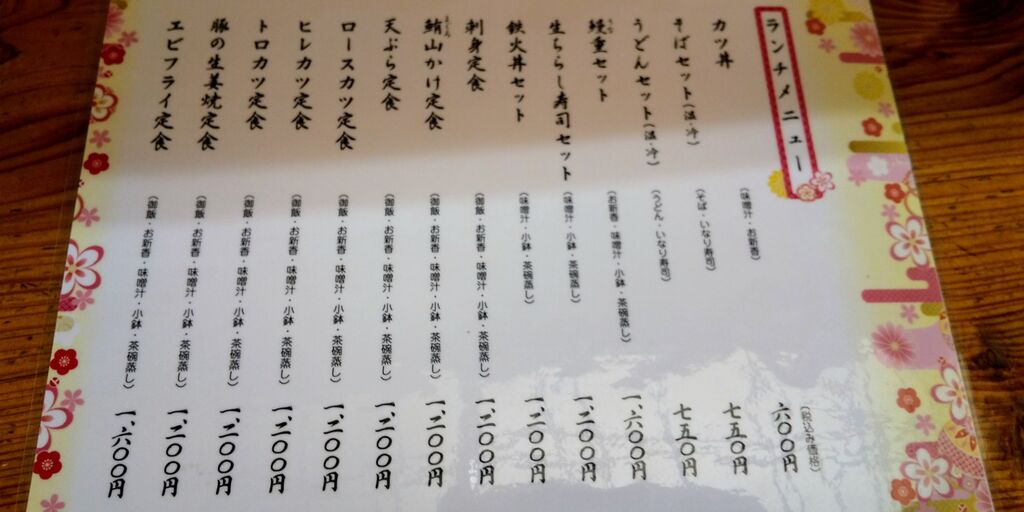 ランチメニュー
(税込み価格)
カツ丼 (味噌汁・お新香) 六〇〇円
そばセット(温・冷) (そば・いなり寿司) 七五〇円
うどんセット(温・冷) (うどん・いなり寿司) 七五〇円
鰻重セット (お新香・味噌汁・小鉢・茶碗蒸し) 一、六〇〇円
生ちらし寿司セット (味噌汁・小鉢・茶碗蒸し) 一、二〇〇円
鉄火丼セット (味噌汁・小鉢・茶碗蒸し) 一、二〇〇円
刺身定食 (御飯・お新香・味噌汁・小鉢・茶碗蒸し) 一、二〇〇円
鮪山かけ定食 (御飯・お新香・味噌汁・小鉢・茶碗蒸し) 一、二〇〇円
天ぷら定食 (御飯・お新香・味噌汁・小鉢・茶碗蒸し) 一、二〇〇円
ロースカツ定食 (御飯・お新香・味噌汁・小鉢・茶碗蒸し) 一、二〇〇円
ヒレカツ定食 (御飯・お新香・味噌汁・小鉢・茶碗蒸し) 一、二〇〇円
トロカツ定食 (御飯・お新香・味噌汁・小鉢・茶碗蒸し) 一、二〇〇円
豚の生姜焼定食 (御飯・お新香・味噌汁・小鉢・茶碗蒸し) 一、二〇〇円
エビフライ定食 (御飯・お新香・味噌汁・小鉢・茶碗蒸し) 一、六〇〇円